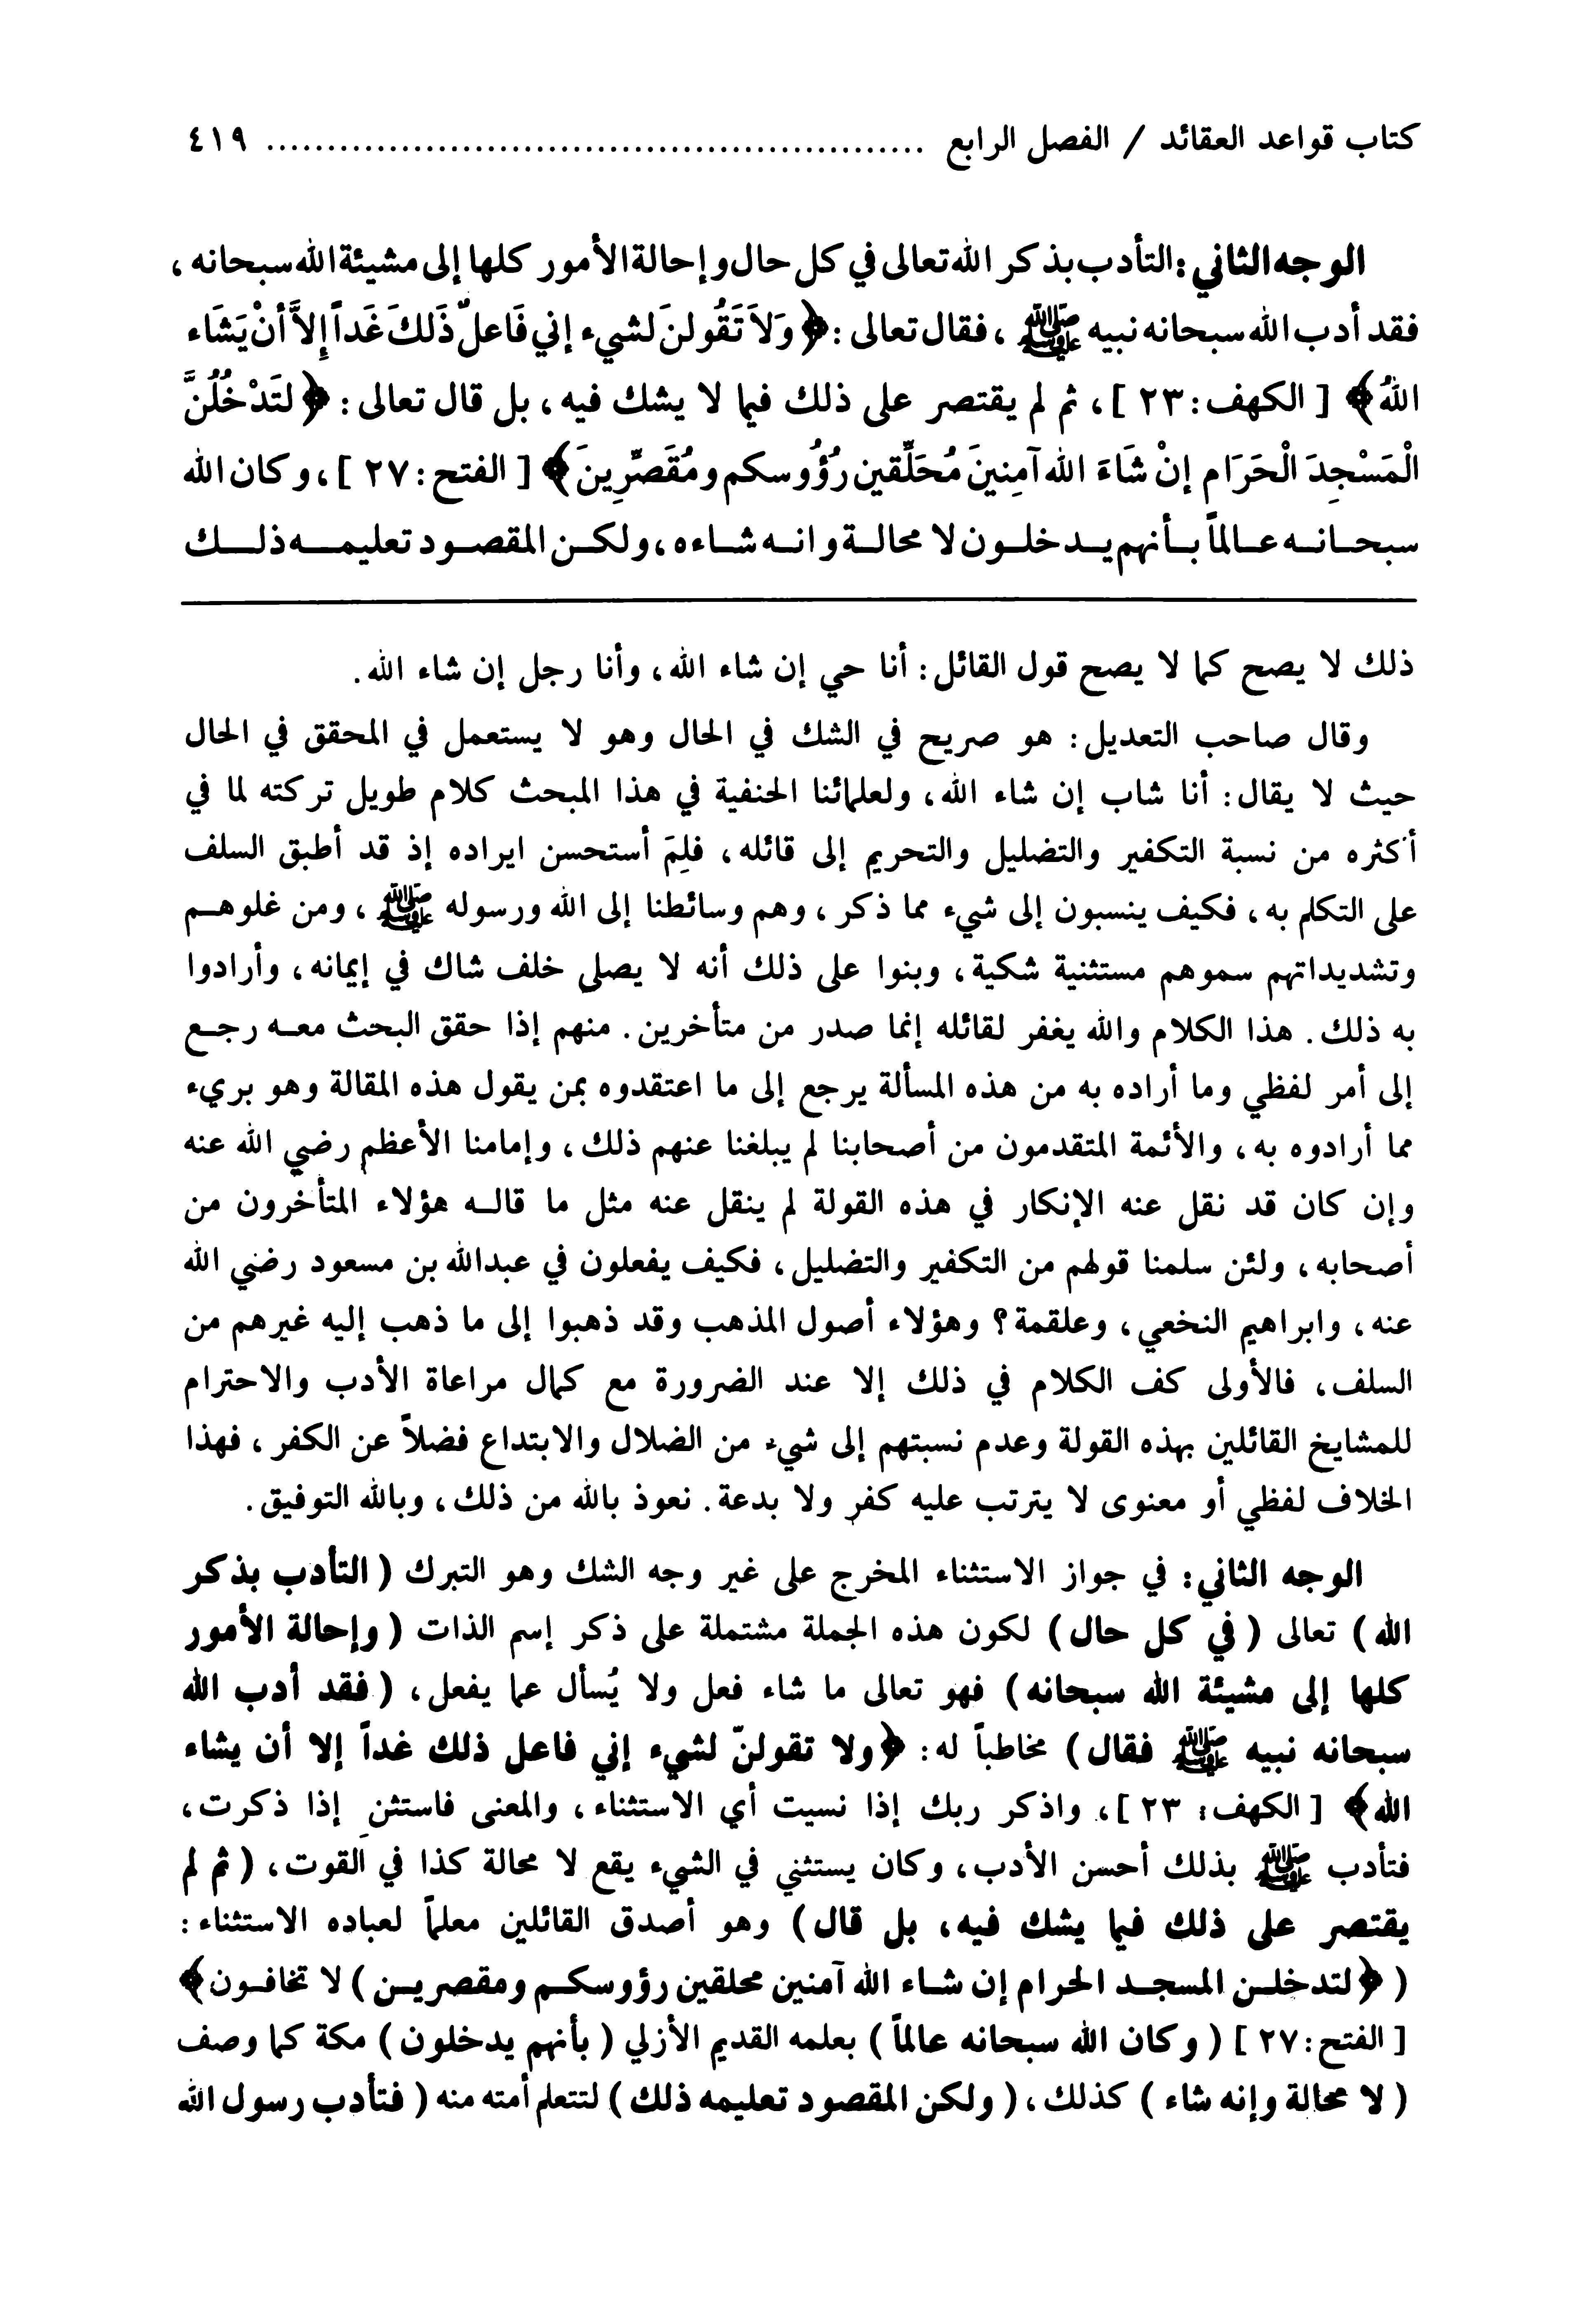 كتاب قواعد العقائد / الفصل الرابع ........................................................ ٤١٩
الوجه الثاني: التأدب بذكر الله تعالى في كل حال وإحالة الأمور كلها إلى مشيئة الله سبحانه،
فقد أدب الله سبحانه نبيه ﷺ، فقال تعالى: ﴿وَلاَ تَقُولنَ لشيء إني فَاعلٌ ذَلكَ غَداً إِلاَّ أنْ يَشَاء
اللهُ﴾ [الكهف: ٢٣]، ثم لم يقتصر على ذلك فيما لا يشك فيه، بل قال تعالى: ﴿لتَدْخُلُنَّ
الْمَسْجِدَ الْحَرَام إنْ شَاءَ الله آمِنينَ مُحَلِّقين رُؤُوسكم ومُقَصِّرِينَ﴾ [الفتح: ٢٧]، وكان الله
سبحانه عالماً بأنهم يدخلون لا محالة وانه شاءه، ولكن المقصود تعليمه ذلك
ذلك لا يصح كما لا يصح قول القائل: أنا حي إن شاء الله، وأنا رجل إن شاء الله.
وقال صاحب التعديل: هو صريح في الشك في الحال وهو لا يستعمل في المحقق في الحال
حيث لا يقال: أنا شاب إن شاء الله، ولعلمائنا الحنفية في هذا المبحث كلام طويل تركته لما في
أكثره من نسبة التكفير والتضليل والتحريم إلى قائله، فلِمَ أستحسن ايراده إذ قد أطبق السلف
على التكلم به، فكيف ينسبون إلى شيء مما ذكر، وهم وسائطنا إلى الله ورسوله ﷺ، ومن غلوهم
وتشديداتهم سموهم مستثنية شكية، وبنوا على ذلك أنه لا يصلي خلف شاك في إيمانه، وأرادوا
به ذلك. هذا الكلام والله يغفر لقائله إنما صدر من متأخرين. منهم إذا حقق البحث معه رجع
إلى أمر لفظي وما أراده به من هذه المسألة يرجع إلى ما اعتقدوه بمن يقول هذه المقالة وهو بريء
مما أرادوه به، والأئمة المتقدمون من أصحابنا لم يبلغنا عنهم ذلك، وإمامنا الأعظم رضي الله عنه
وإن كان قد نقل عنه الإنكار في هذه القولة لم ينقل عنه مثل ما قاله هؤلاء المتأخرون من
أصحابه، ولئن سلمنا قولهم من التكفير والتضليل، فكيف يفعلون في عبدالله بن مسعود رضي الله
عنه، وابراهيم النخعي، وعلقمة؟ وهؤلاء أصول المذهب وقد ذهبوا إلى ما ذهب إليه غيرهم من
السلف، فالأولى كف الكلام في ذلك إلا عند الضرورة مع كمال مراعاة الأدب والاحترام
للمشايخ القائلين بهذه القولة وعدم نسبتهم إلى شيء من الضلال والابتداع فضلاً عن الكفر، فهذا
الخلاف لفظي أو معنوى لا يترتب عليه كفر ولا بدعة. نعوذ بالله من ذلك، وبالله التوفيق.
الوجه الثاني: في جواز الاستثناء المخرج على غير وجه الشك وهو التبرك (التأدب بذكر
الله) تعالى (في كل حال) لكون هذه الجملة مشتملة على ذكر إسم الذات (وإحالة الأمور
كلها إلى مشيئة الله سبحانه) فهو تعالى ما شاء فعل ولا يُسأل عما يفعل، (فقد أدب الله
سبحانه نبيه ﷺ فقال) مخاطباً له: ﴿ولا تقولنّ لشيء إني فاعل ذلك غداً إلا أن يشاء
الله﴾ [الكهف: ٢٣]، واذكر ربك إذا نسيت أي الاستثناء، والمعنى فاستثنِ إذا ذكرت،
فتأدب ﷺ بذلك أحسن الأدب، وكان يستثني في الشيء يقع لا محالة كذا في القوت، (ثم لم
يقتصر على ذلك فيما يشك فيه، بل قال) وهو أصدق القائلين معلماً لعباده الاستثناء:
(﴿لتدخلن المسجد الحرام إن شاء الله آمنين محلقين رؤوسكم ومقصرين) لا تخافون﴾
[الفتح: ٢٧] (وكان الله سبحانه عالماً) بعلمه القديم الأزلي (بأنهم يدخلون) مكة كما وصف
(لا محالة وإنه شاء) كذلك، (ولكن المقصود تعليمه ذلك) لتتعلم أمته منه (فتأدب رسول الله